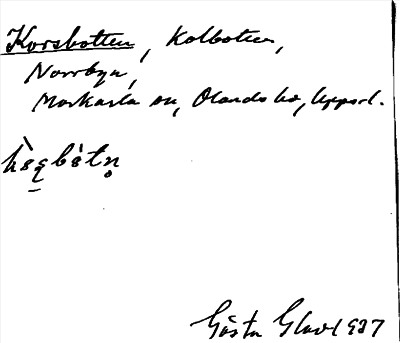 Korsbotten, Kolbotten,
Norrbyn,
Morkarla sn, Olands hd, Uppsl.
Gösta Glav 1937